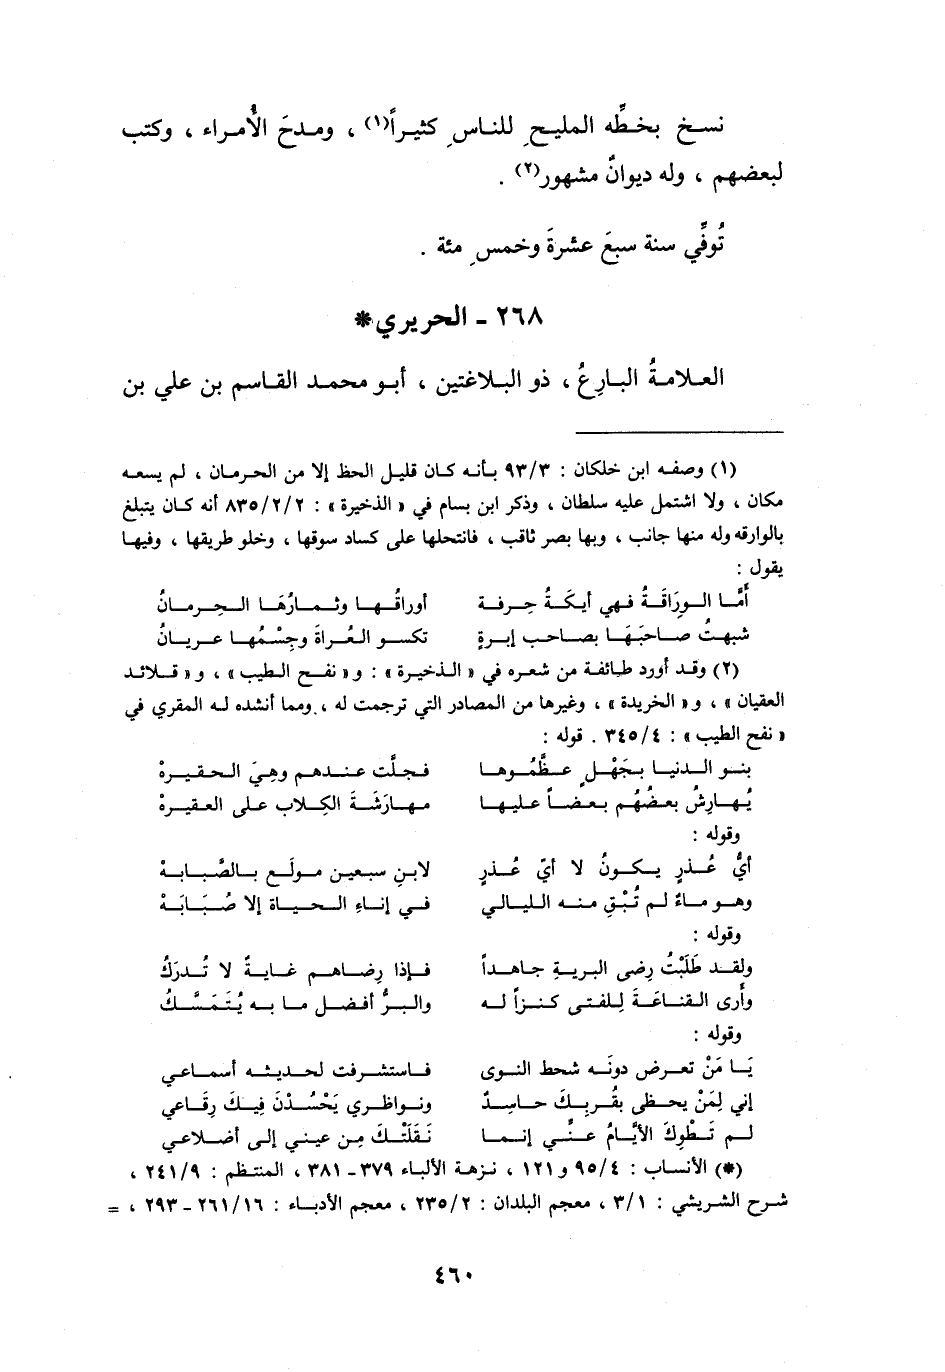 نسخ بخطِّه المليحِ للناسِ كثيراً(١) ، ومدحَ الأُمراء ، وكتب
لبعضهم ، وله ديوانٌ مشهور(٢) .
تُوفِّي سنة سبعَ عشرةَ وخمسِ مئة .
٢٦٨ - الحريري*
العلامةُ البارِعُ ، ذو البلاغتين ، أبو محمد القاسم بن علي بن
(١) وصفه ابن خلكان : ٩٣/٣ بأنه كان قليل الحظ إلا من الحرمان ، لم يسعه
مكان ، ولا اشتمل عليه سلطان ، وذكر ابن بسام في « الذخيرة » : ٨٣٥/٢/٢ أنه كان يتبلغ
بالوارقه وله منها جانب ، وبها بصر ثاقب ، فانتحلها على كساد سوقها ، وخلو طريقها ، وفيها
يقول :
أمَّا الوِرَاقَةُ فهي أيكَةُ حِرفة أوراقُها وثمارُها الحِرمانُ
شبهتُ صاحبَهَا بصاحب إبرةٍ تكسو العُراةَ وجِسْمُها عريانُ
(٢) وقد أورد طائفة من شعره في « الذخيرة » : و« نفح الطيب » ، و« قلائد
العقيان » ، و« الخريدة » ، وغيرها من المصادر التي ترجمت له ، ومما أنشده له المقري في
« نفح الطيب » : ٣٤٥/٤ . قوله :
بنو الدنيا بجَهْلٍ عظَّمُوها فجلَّت عندهم وهيَ الحقيرهْ
يُهارِشُ بعضُهُم بعضاً عليها مهارَشَةَ الكِلاب على العقيرهْ
وقوله :
أيُّ عُذرٍ يكونُ لا أيّ عُذرٍ لابنِ سبعين مولَعٍ بالصَّبابهْ
وهو ماءٌ لم تُبْقِ منه الليالي في إناءِ الحياة إلا صُبَابَهْ
وقوله :
ولقد طَلَبْتُ رِضى البريةِ جاهداً فإذا رِضاهم غايةٌ لا تُدرَكُ
وأَرى القناعَةَ لِلفتى كنزاً له والبرُّ أفضل ما به يُتَمَسَّكُ
وقوله :
يَا مَنْ تعرض دونَه شحط النوى فاستشرفت لحديثه أسماعي
إني لَمَنْ يحظى بقُربِكَ حاسِدٌ ونواظري يَحْسُدْنَ فِيكَ رِقَاعي
لم تَطْوِكَ الأيَّامُ عنِّي إنما نَقَلَتْكَ مِن عيني إلى أضلاعي
(*) الأنساب : ٩٥/٤ و١٢١ ، نزهة الألباء ٣٧٩ - ٣٨١ ، المنتظم : ٢٤١/٩ ،
شرح الشريشي : ٣/١ ، معجم البلدان : ٢٣٥/٢ ، معجم الأدباء : ٢٦١/١٦ - ٢٩٣ ، =
٤٦٠